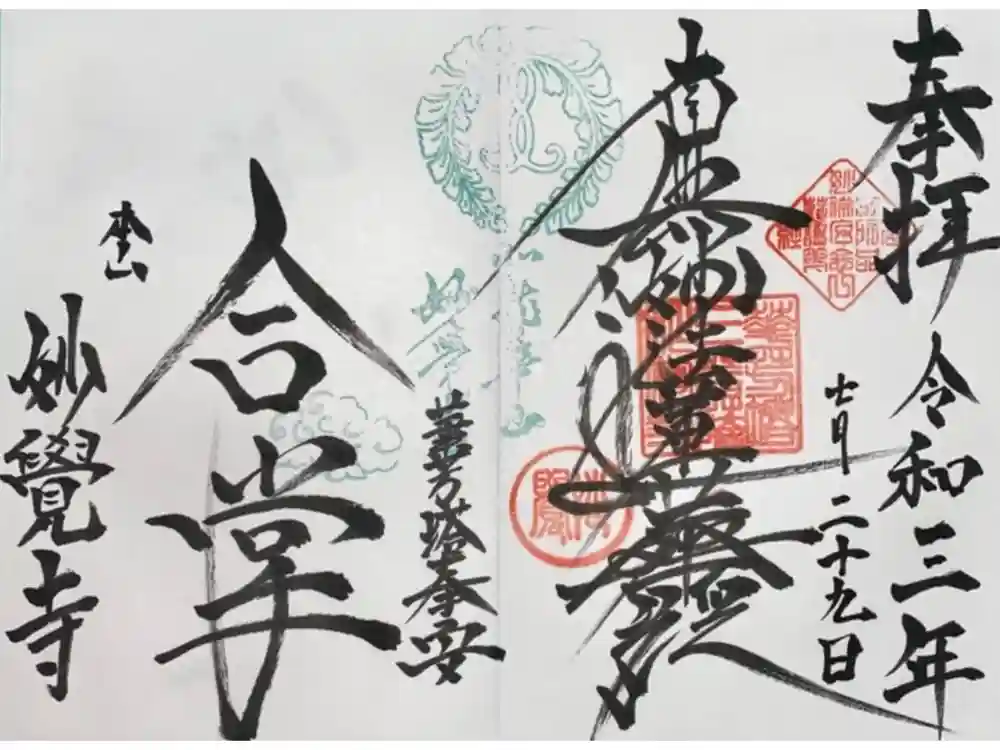 奉拝
令和三年
七月二十九日
南無妙法蓮華経
華芳塔奉安
合掌
本山
妙覺寺